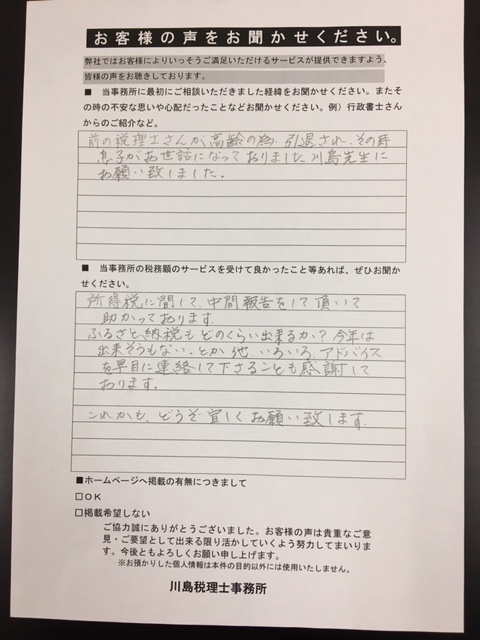 お客様の声をお聞かせください。
弊社ではお客様によりいっそうご満足いただけるサービスが提供できますよう、
皆様の声をお聴きしております。
■　当事務所に最初にご相談いただきました経緯をお聞かせください。またそ
の時の不安な思いや心配だったことなどお聞かせください。例）行政書士さん
からのご紹介など。
前の税理士さんが高齢の為、引退され、その時
息子がお世話になっておりました川島先生に
お願い致しました。
■　当事務所の税務顧のサービスを受けて良かったこと等あれば、ぜひお聞か
せください。
所得税に関して、中間報告をして頂いて
助かっております。
ふるさと納税もどのくらい出来るか？今年は
出来そうもない、とか他、いろいろ、アドバイス
を早目に連絡して下さることも感謝して
おります。
これかも、どうぞ宜しくお願い致します。
■ホームページへ掲載の有無につきまして
□OK
□掲載希望しない
ご協力誠にありがとうございました。お客様の声は貴重なご意
見・ご要望として出来る限り活かしていくよう努力してまいりま
す。今後ともよろしくお願い申し上げます。
※お預かりした個人情報は本件の目的以外には使用いたしません。
川島税理士事務所